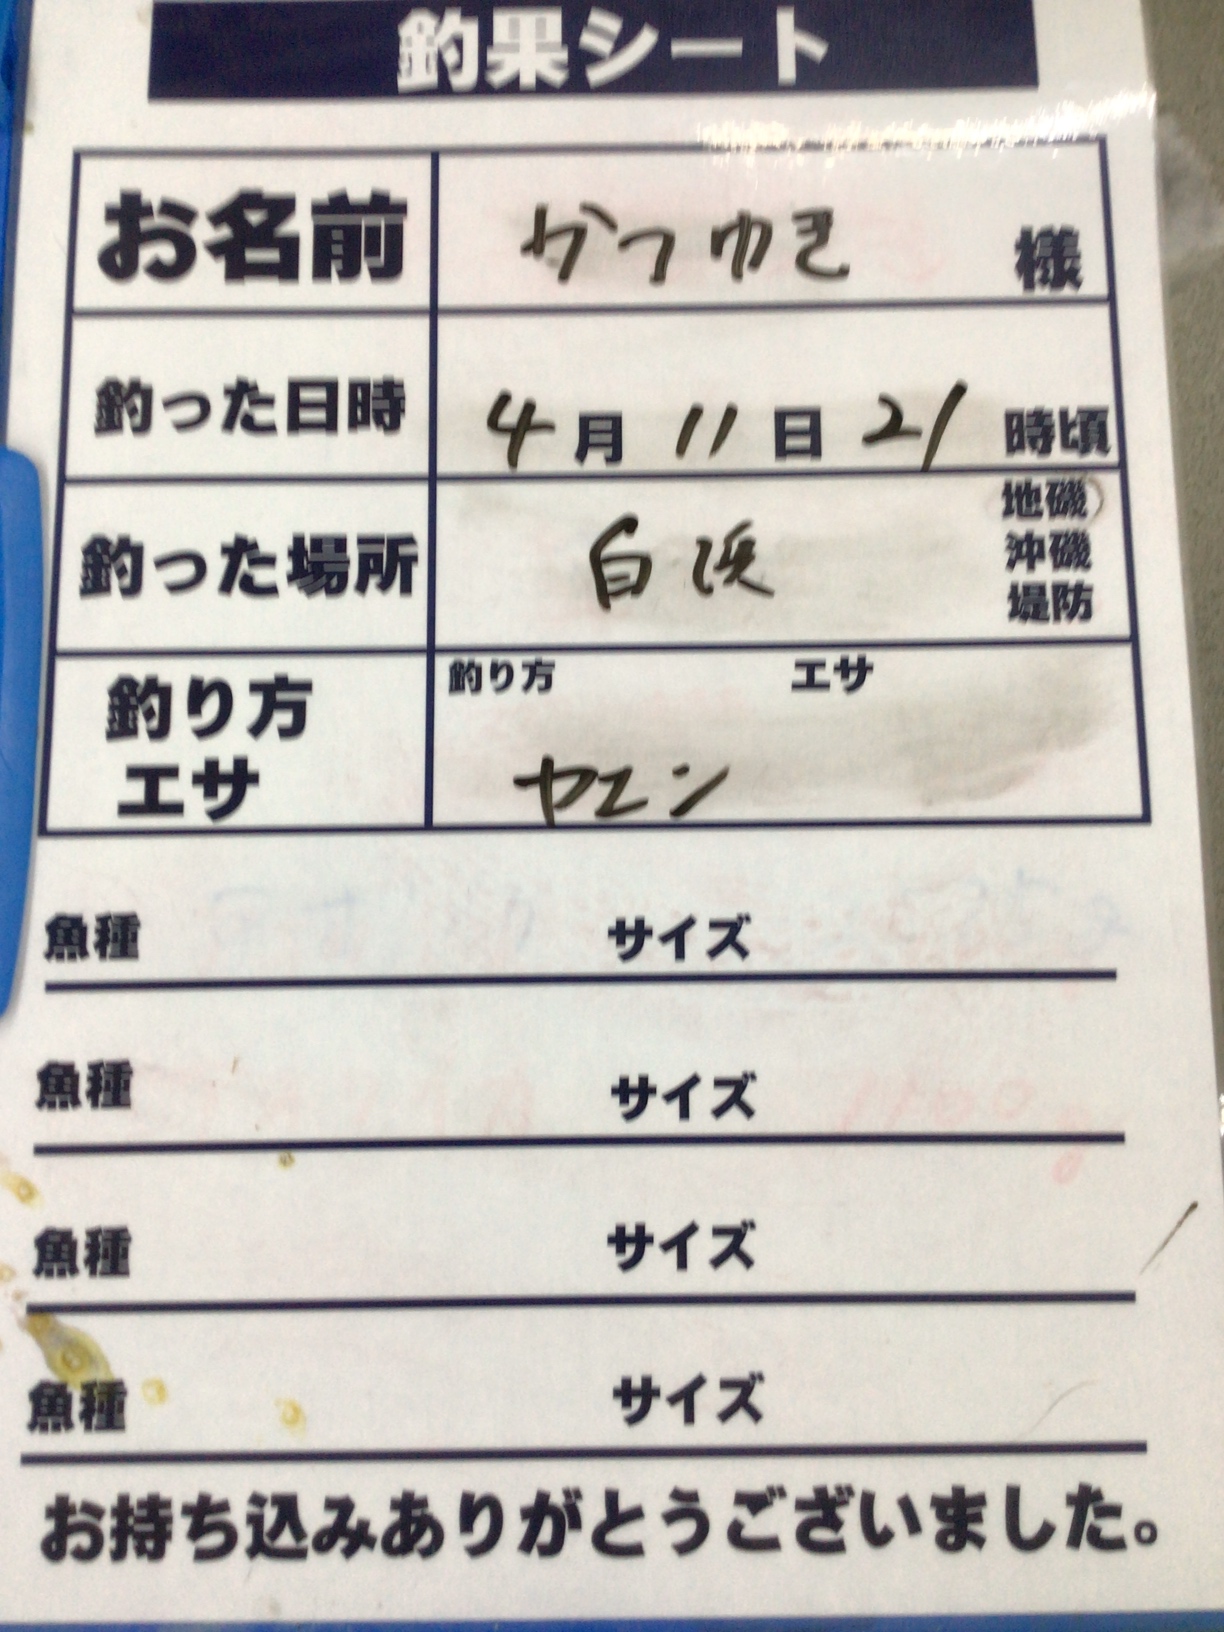 釣果シート
お名前 かつゆき 様
釣った日時 4月11日21時頃
釣った場所 白浜 地磯
沖磯
堤防
釣り方 エサ
釣り方
エサ
ヤエン
魚種 サイズ
魚種 サイズ
魚種 サイズ
魚種 サイズ
お持ち込みありがとうございました。